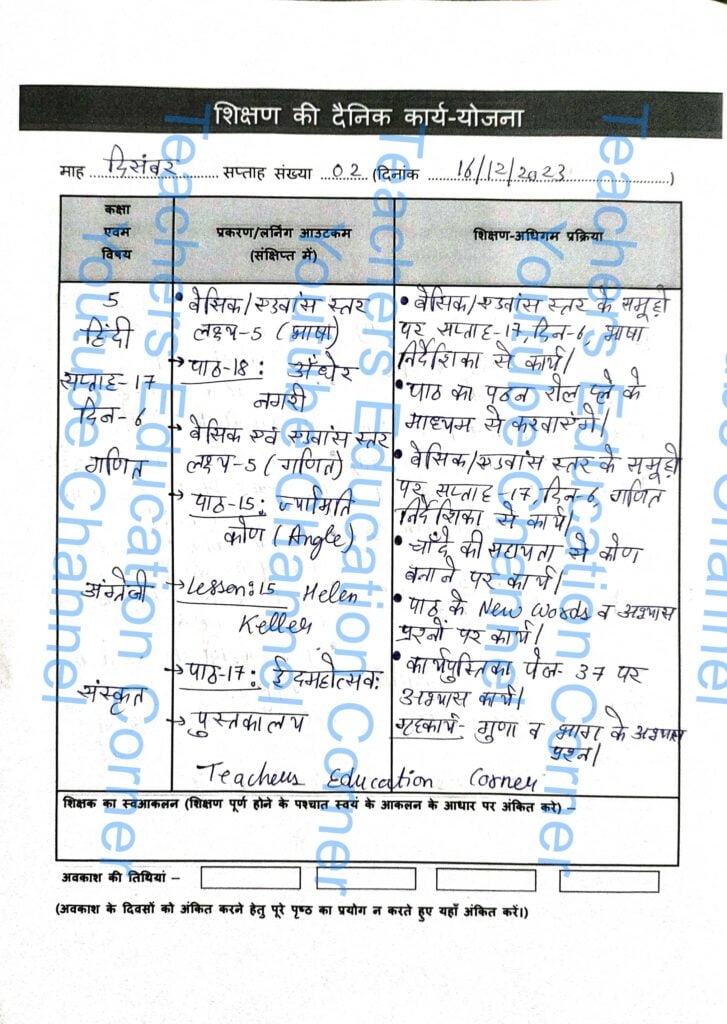 शिक्षण की दैनिक कार्य-योजना
माह दिसंबर सप्ताह संख्या 02 (दिनांक 16/12/2023)
कक्षा
एवम
विषय
प्रकरण/लर्निंग आउटकम
(संक्षिप्त में)
शिक्षण-अधिगम प्रक्रिया
5
हिंदी
सप्ताह-17
दिन-6
गणित
अंग्रेजी
संस्कृत
• बेसिक/एडवांस स्तर
लक्ष्य-5 (भाषा)
→ पाठ-18: अँधेर
नगरी
→ बेसिक एवं एडवांस स्तर
लक्ष्य-5 (गणित)
→ पाठ-15: ज्यामिति
कोण (Angle)
→ Lesson:15 Helen
Keller
→ पाठ-17: ईदमहोत्सवः
→ पुस्तकालय
• बेसिक/एडवांस स्तर के समूहों
पर सप्ताह-17, दिन-6, भाषा
निर्देशिका से कार्य।
• पाठ का पठन रोल प्ले के
माध्यम से करवाएंगे।
• बेसिक/एडवांस स्तर के समूहों
पर सप्ताह-17, दिन-6, गणित
निर्देशिका से कार्य।
• चाँदे की सहायता से कोण
बनाने पर कार्य।
• पाठ के New words व अभ्यास
प्रश्नों पर कार्य।
• कार्यपुस्तिका पेज- 37 पर
अभ्यास कार्य।
गृहकार्य- गुणा व भाग के अभ्यास
प्रश्न।
Teachers Education Corner
शिक्षक का स्वआकलन (शिक्षण पूर्ण होने के पश्चात स्वयं के आकलन के आधार पर अंकित करे) –
अवकाश की तिथियां –
(अवकाश के दिवसों को अंकित करने हेतु पूरे पृष्ठ का प्रयोग न करते हुए यहाँ अंकित करें।)
Teachers Education Corner
Youtube Channel
Teachers Education Corner
Youtube Channel
Teachers Education Corner
Youtube Channel